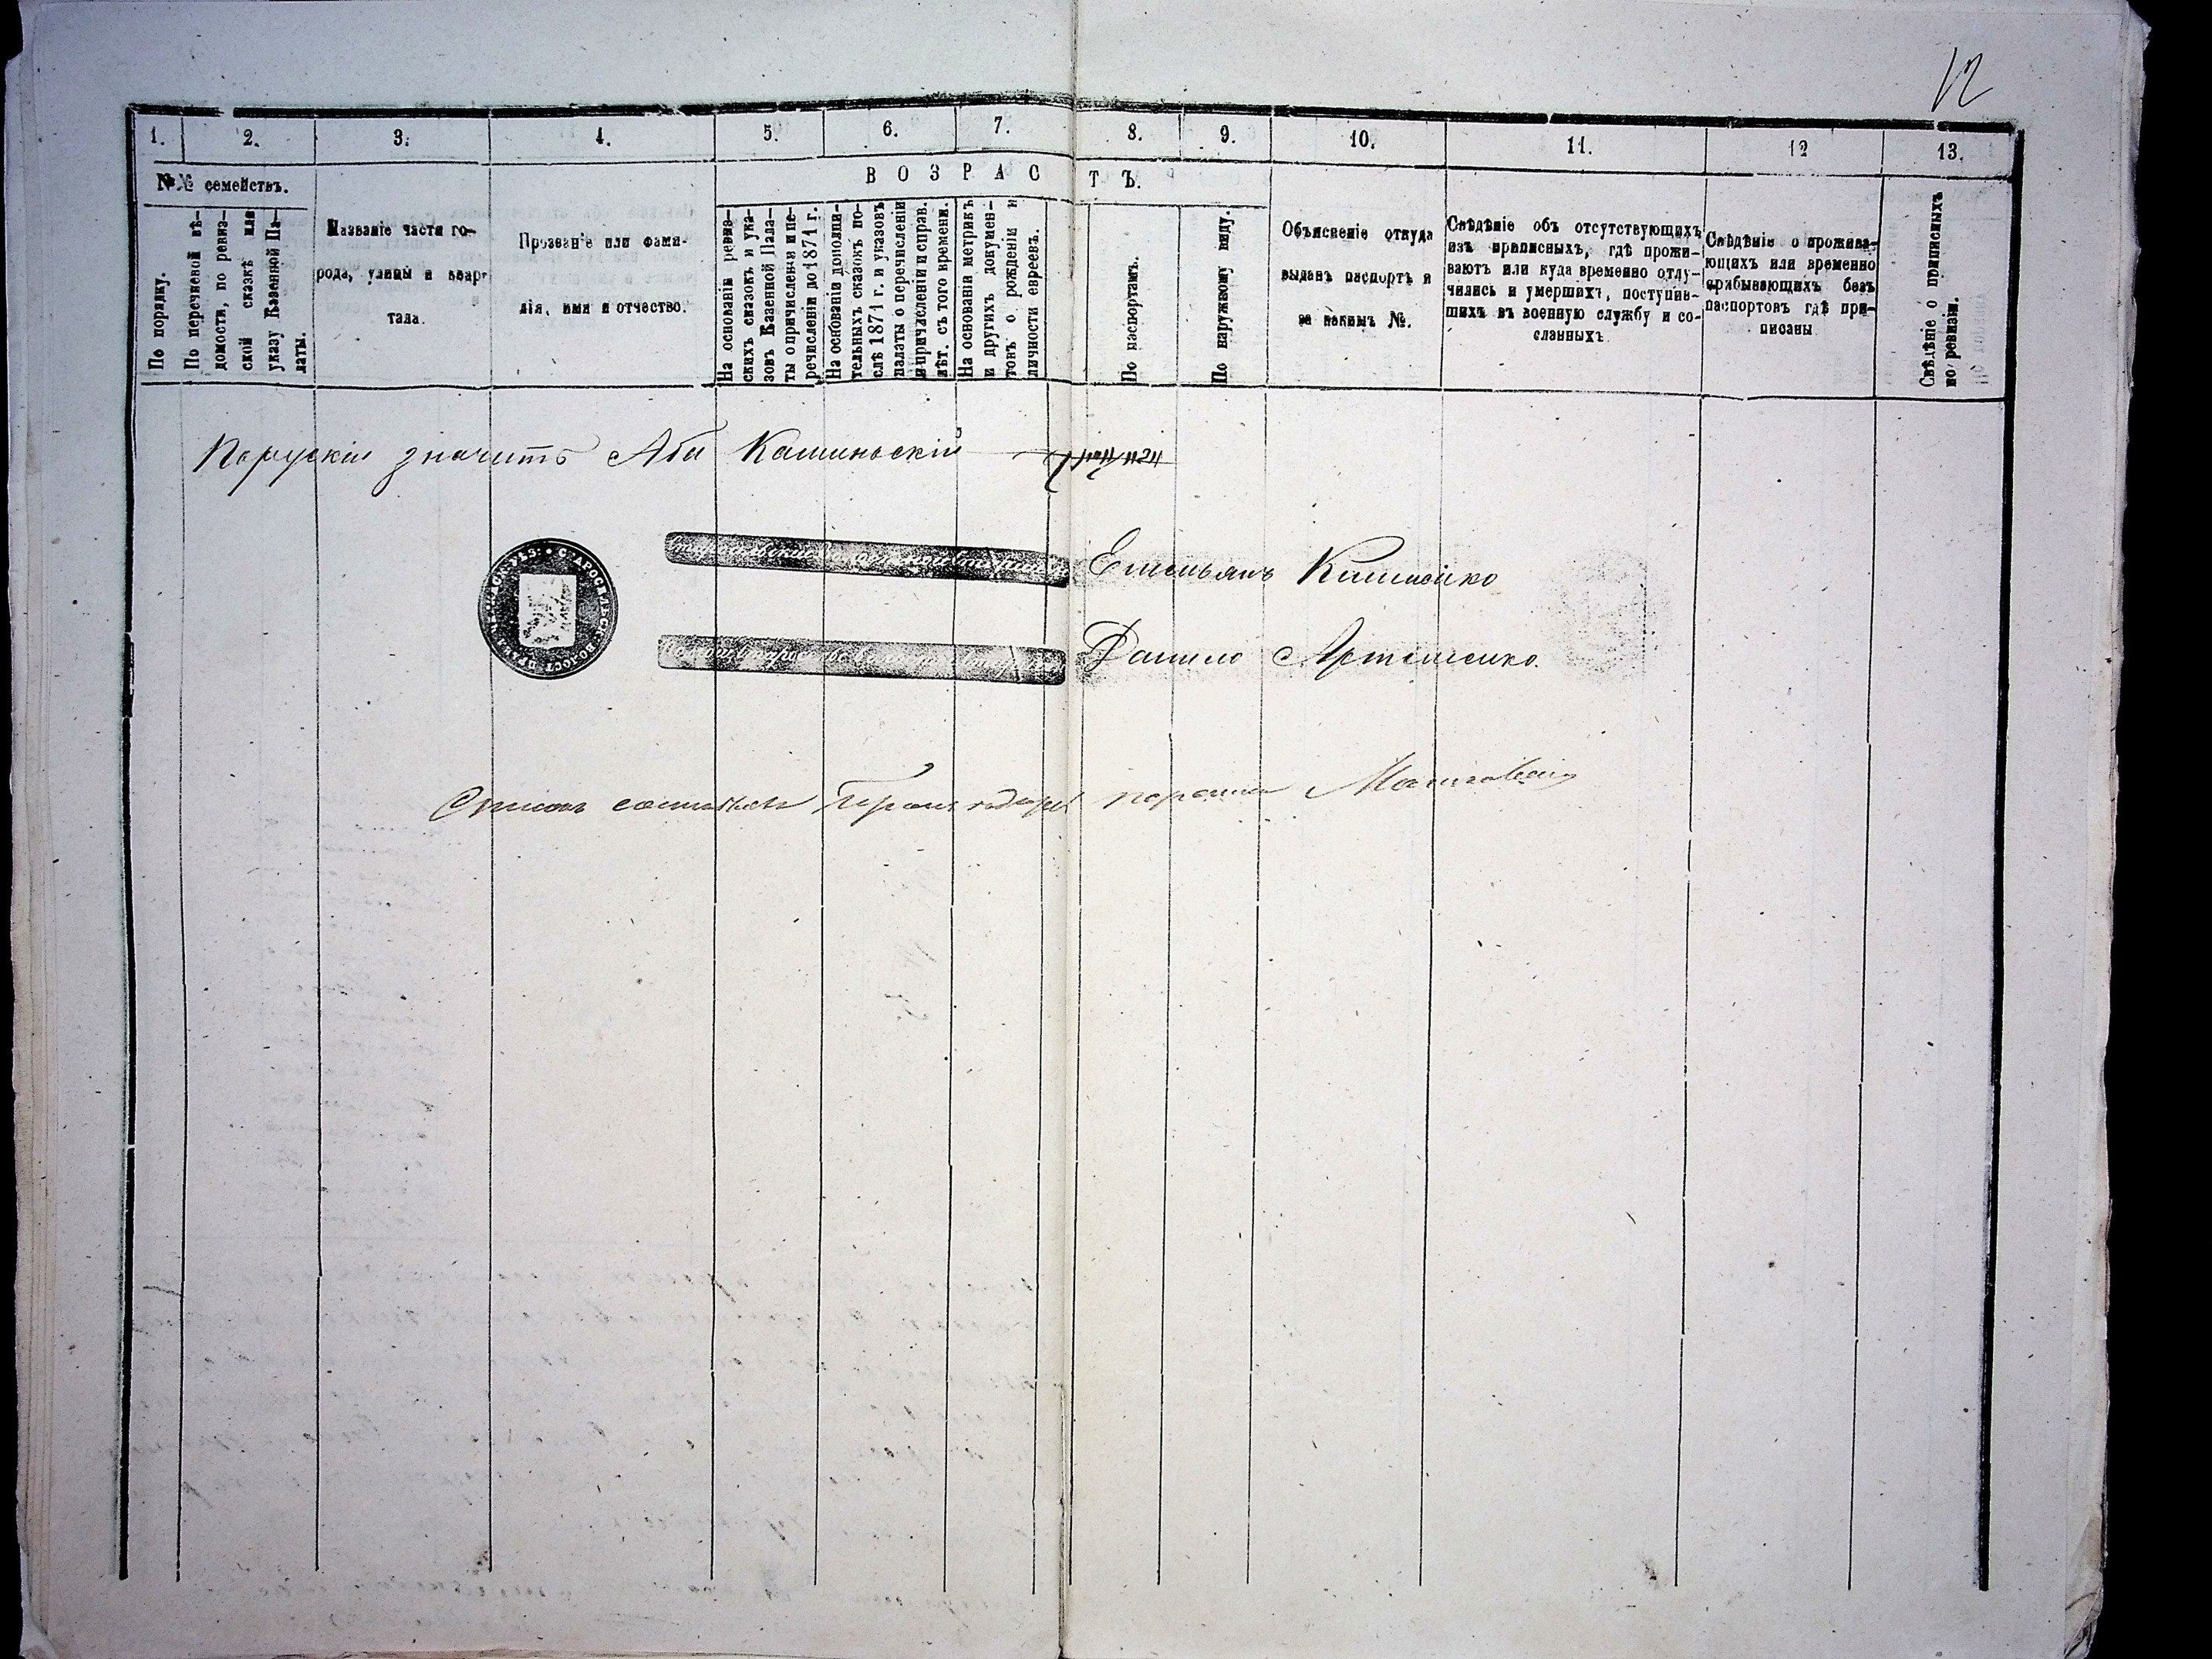 12
1. 2. 3. 4. 5. 6. 7. 8. 9. 10. 11. 12 13.
№№ семействъ.
ВОЗРАСТЪ.
По порядку.
По перечневой вѣ-
домости, по ревиз-
ской сказкѣ или
указу Казенной Па-
латы.
Названіе части го-
рода, улицы и квар-
тала.
Прозваніе или фами-
лія, имя и отчество.
На основаніи ревиз-
скихъ сказокъ и ука-
зовъ Казенной Пала-
ты о причисленіи и пе-
речисленіи до 1871 г.
На основаніи дополни-
тельныхъ сказокъ по-
слѣ 1871 г. и указовъ
палаты о перечисленіи
и причисленіи и справ.
лѣт. съ того времени.
На основаніи метрикъ
и другихъ докумен-
товъ о рожденіи и
личности евреевъ.
По паспортамъ.
По наружному виду.
Объясненіе откуда
выданъ паспортъ и
за какимъ №.
Свѣдѣніе объ отсутствующихъ
изъ приписныхъ, гдѣ прожи-
ваютъ или куда временно отлу-
чились и умершихъ, поступив-
шихъ въ военную службу и со-
сланныхъ
Свѣдѣніе о прожива-
ющихъ или временно
прибывающихъ безъ
паспортовъ гдѣ при-
писаны
Свѣдѣніе о приписныхъ
по ревизіи.
Поруский значитъ Аби Каминьскій
Емельянъ Клименко
Данило Артеменко.
Списокъ составлялъ